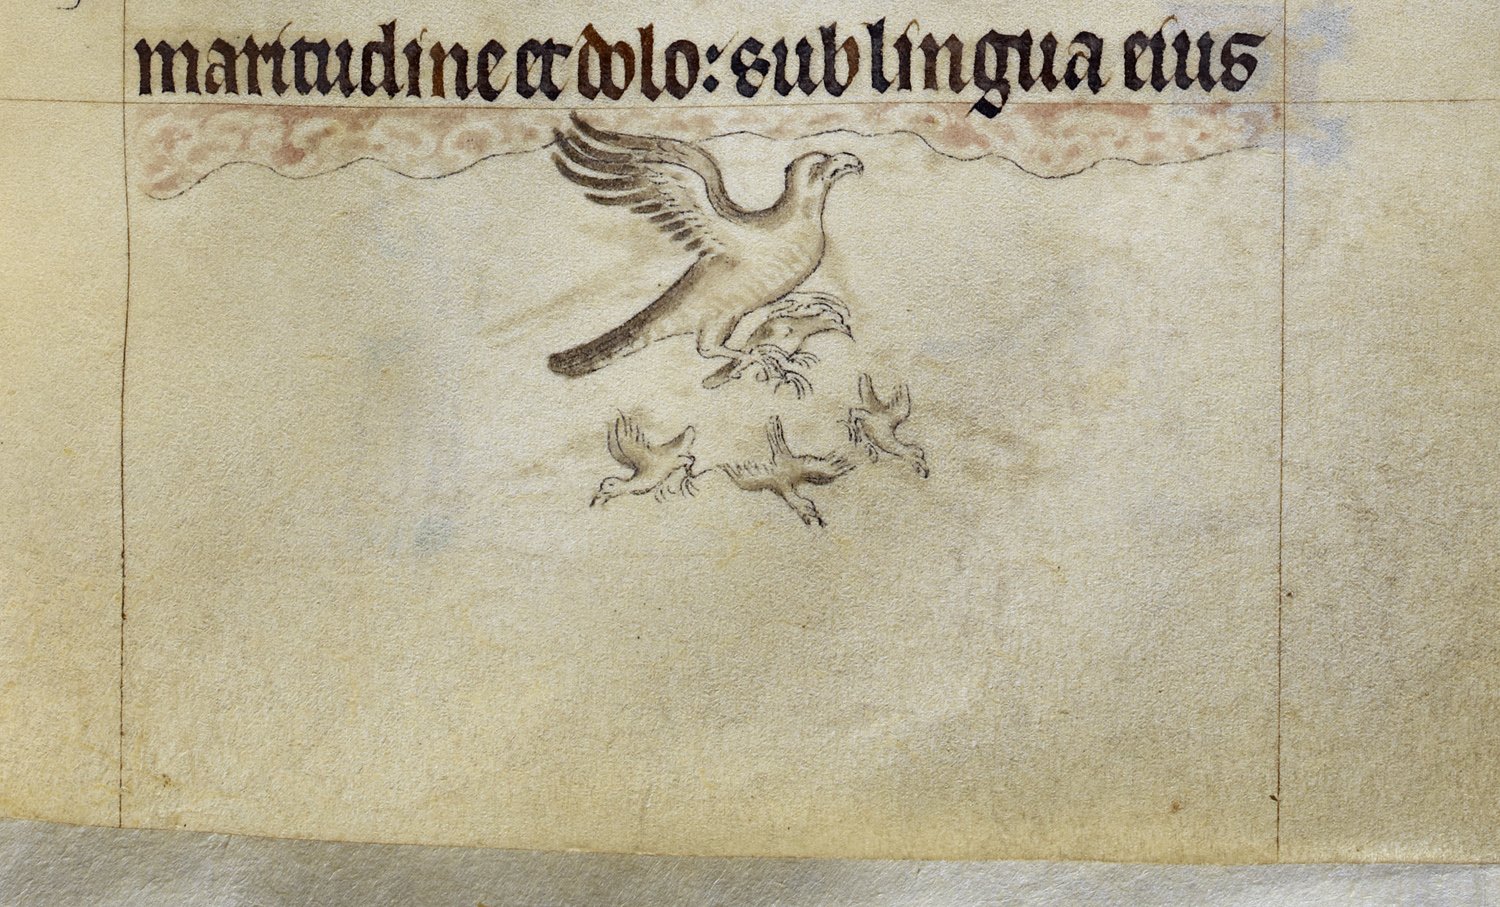 maritudine et dolo: sub lingua eius